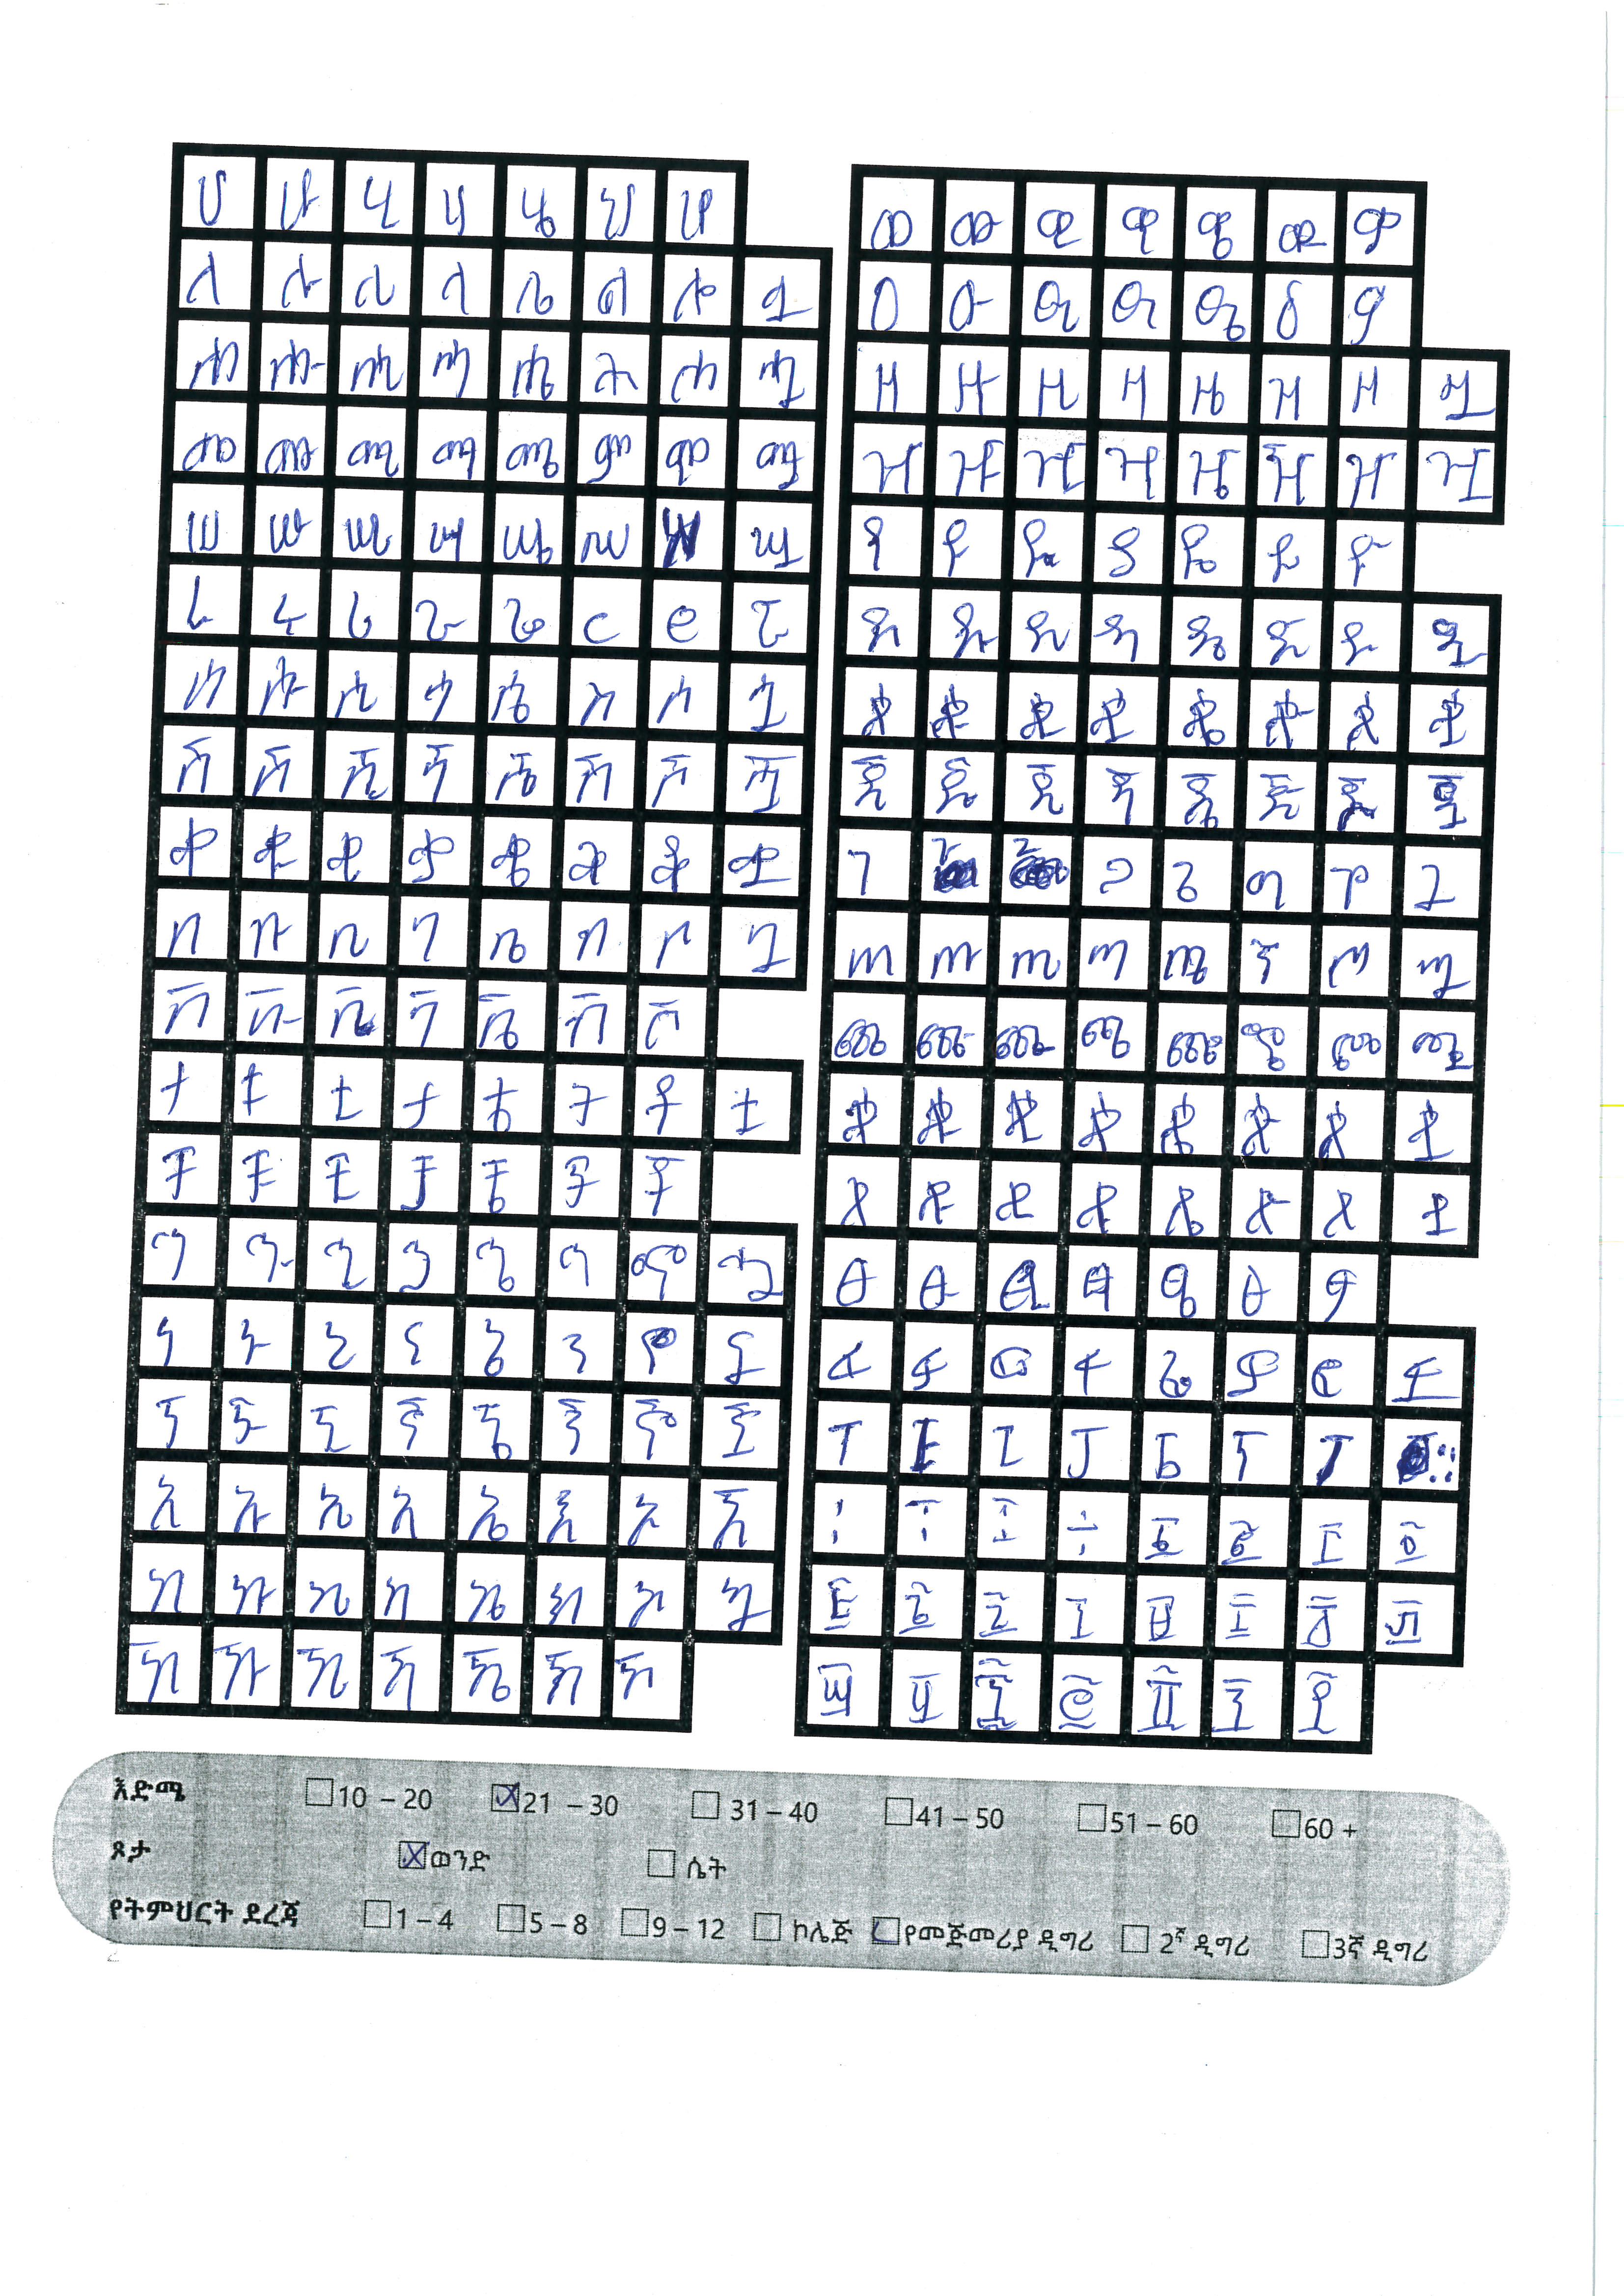 ሀ ሁ ሂ ሃ ሄ ህ ሆ
ለ ሉ ሊ ላ ሌ ል ሎ ሏ
ሐ ሑ ሒ ሓ ሔ ሕ ሖ ሗ
መ ሙ ሚ ማ ሜ ም ሞ ሟ
ሠ ሡ ሢ ሣ ሤ ሥ ሧ
ረ ሩ ሪ ራ ሬ ር ሮ ሯ
ሰ ሱ ሲ ሳ ሴ ስ ሶ ሷ
ሸ ሹ ሺ ሻ ሼ ሽ ሾ ሿ
ቀ ቁ ቂ ቃ ቄ ቅ ቆ ቋ
በ ቡ ቢ ባ ቤ ብ ቦ ቧ
ቨ ቩ ቪ ቫ ቬ ቭ ቮ
ተ ቱ ቲ ታ ቴ ት ቶ ቷ
ቸ ቹ ቺ ቻ ቼ ች ቾ
ኀ ኁ ኂ ኃ ኄ ኅ ኆ ኋ
ነ ኑ ኒ ና ኔ ን ኖ ኗ
ኘ ኙ ኚ ኛ ኜ ኝ ኞ ኟ
አ ኡ ኢ ኣ ኤ እ ኦ ኧ
ከ ኩ ኪ ካ ኬ ክ ኮ ኳ
ኸ ኹ ኺ ኻ ኼ ኽ ኾ
ወ ዉ ዊ ዋ ዌ ው ዎ
ዐ ዑ ዒ ዓ ዔ ዕ ዖ
ዘ ዙ ዚ ዛ ዜ ዝ ዞ ዟ
ዠ ዡ ዢ ዣ ዤ ዥ ዦ ዧ
የ ዩ ዪ ያ ዬ ይ ዮ
ደ ዱ ዲ ዳ ዴ ድ ዶ ዷ
ጀ ጁ ጂ ጃ ጄ ጅ ጆ ጇ
ገ ጋ ጌ ግ ጎ ጓ
ጠ ጡ ጢ ጣ ጤ ጥ ጦ ጧ
ጨ ጩ ጪ ጫ ጬ ጭ ጮ ጯ
ጰ ጱ ጲ ጳ ጴ ጵ ጶ ጷ
ጸ ጹ ጺ ጻ ጼ ጽ ጾ ጿ
ፀ ፁ ፂ ፃ ፄ ፅ ፆ
ፈ ፉ ፊ ፋ ፌ ፍ ፎ ፏ
ፐ ፑ ፒ ፓ ፔ ፕ ፖ
፩ ፪ ፫ ፬
፭ ፮ ፯ ፰ ፱ ፲ ፳ ፴
፵ ፶ ፷ ፸ ፹ ፺ ፻
እድሜ 10 – 20 21 – 30 31 – 40 41 – 50 51 – 60 60 +
ጾታ ወንድ ሴት
የትምህርት ደረጃ 1 – 4 5 – 8 9 – 12 ኮሌጅ የመጀመሪያ ዲግሪ 2ኛ ዲግሪ 3ኛ ዲግሪ